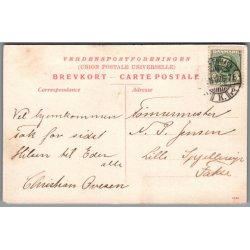 VERDENSPOSTFORENINGEN
(UNION POSTALE UNIVERSELLE)
BREVKORT – CARTE POSTALE
Correspondance
Adresse
Vel hjemkommen
Tak for sidst
Hilsen til Eder
alle
Christian Ovesen
Tømmermester
N. P. Jensen
Lille
Fakse